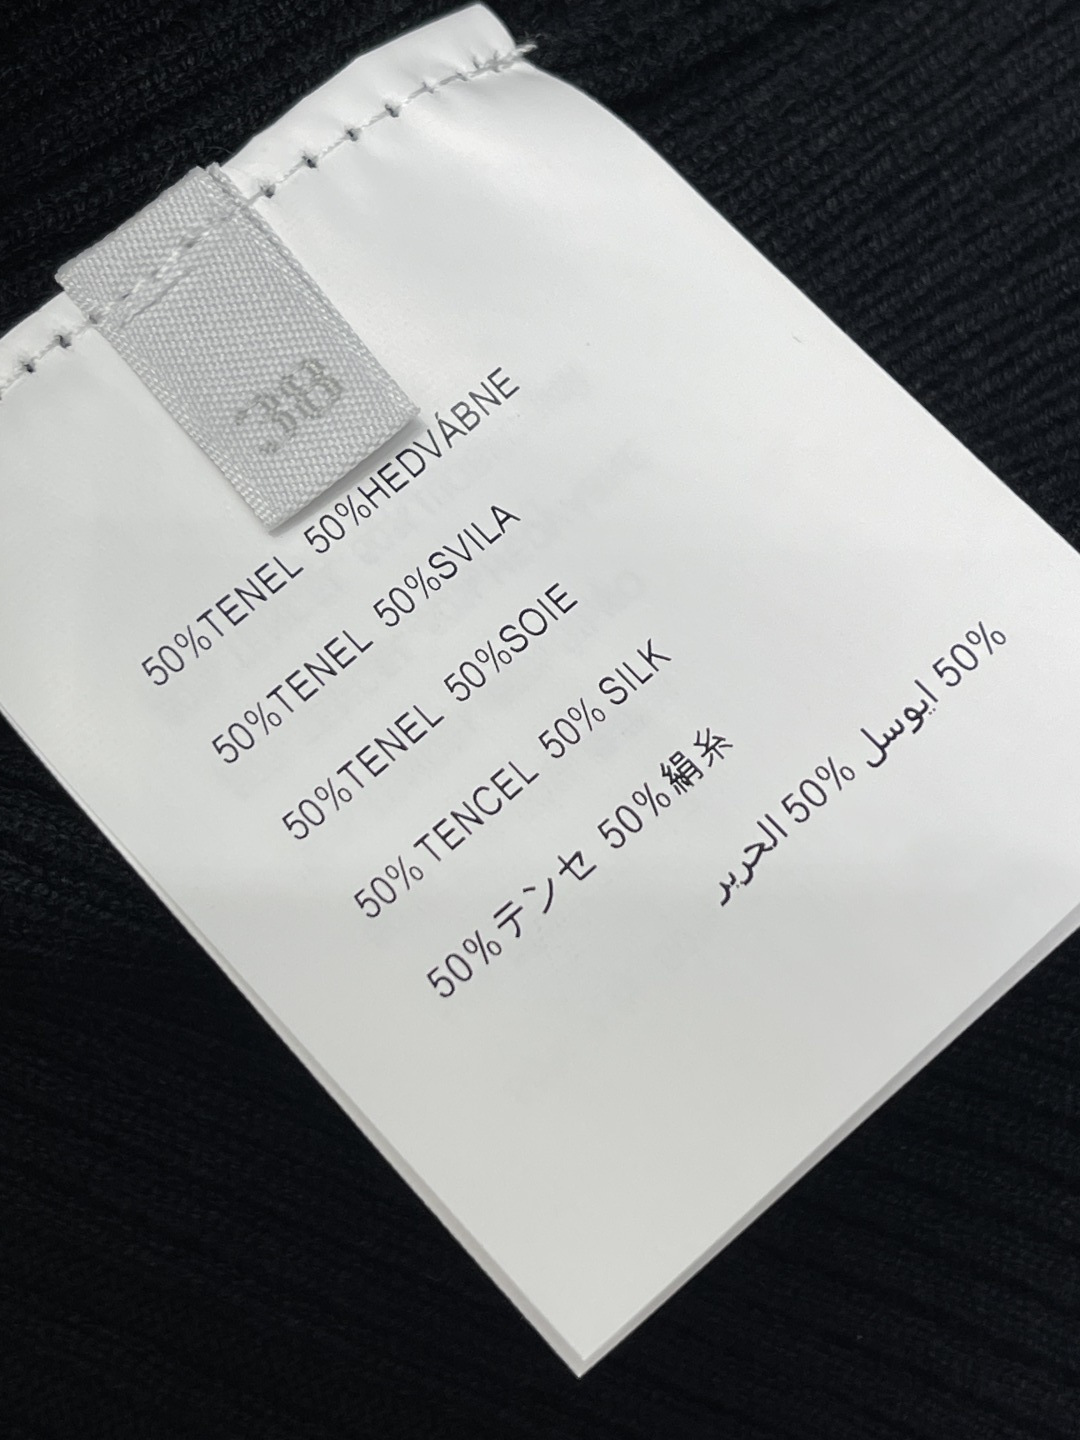 50%TENEL 50%HEDVÁBNE
50%TENEL 50%SVILA
50%TENEL 50%SOIE
50% TENCEL 50% SILK
50%テンセ 50%絹糸
50% ايوسل 50% الحرير